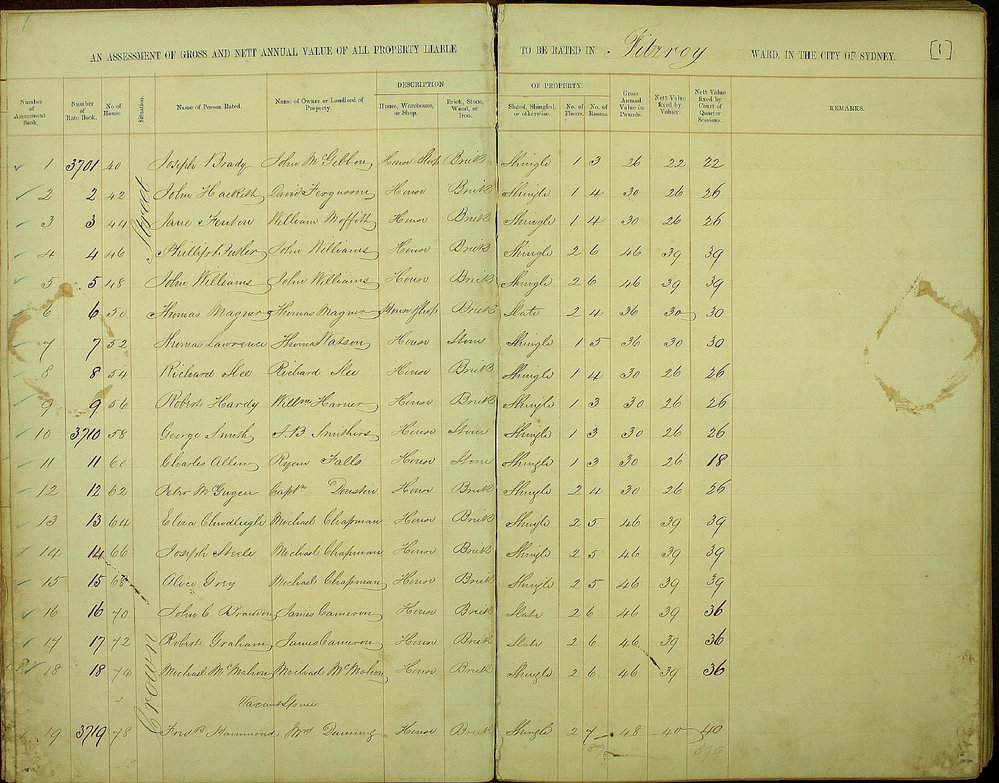 AN ASSESSMENT OF GROSS AND NETT ANNUAL VALUE OF ALL PROPERTY LIABLE TO BE RATED IN Fitzroy WARD, IN THE CITY OF SYDNEY. [1]
DESCRIPTION OF PROPERTY.
Number of Assessment Book. Number of Rate Book. No. of House. Situation. Name of Person Rated. Name of Owner or Landlord of Property. House, Warehouse, or Shop. Brick, Stone, Wood, or Iron. Slated, Shingled, or otherwise. No. of Floors. No. of Rooms. Gross Annual Value in Pounds. Nett Value fixed by Valuer. Nett Value fixed by Court of Quarter Sessions. REMARKS.
Crown Street
1 3701 40 Joseph Brady John McGibbon House Shop Brick Shingle 1 3 26 22 22
2 2 42 John Hackett David Fergusson House Brick Shingle 1 4 30 26 26
3 3 44 Jane Fenton William Moffitt House Brick Shingle 1 4 30 26 26
4 4 46 Phillip Butler John Williams House Brick Shingle 2 6 46 39 39
5 5 48 John Williams John Williams House Brick Shingle 2 6 46 39 39
6 6 50 Thomas Magner Thomas Magner House Shop Brick Slate 2 4 36 30 30
7 7 52 Thomas Lawrence Thomas Watson House Stone Shingle 1 5 36 30 30
8 8 54 Richard Richard House Brick Shingle 1 4 30 26 26
9 9 56 Robert Hardy Willm Harner House Brick Shingle 1 3 30 26 26
10 3710 58 George Smith J. B. Smithers House Stone Shingle 1 3 30 26 26
11 11 60 Charles Allen Ryan Falls House Stone Shingle 1 3 30 26 18
12 12 62 Peter Captn House Brick Shingle 2 4 30 26 26
13 13 64 Eliza Chudleigh Michael Chapman House Brick Shingle 2 5 46 39 39
14 14 66 Joseph Steele Michael Chapman House Brick Shingle 2 5 46 39 39
15 15 68 Alice Grey Michael Chapman House Brick Shingle 2 5 46 39 39
16 16 70 John C James Cameron House Brick Slate 2 6 46 39 36
17 17 72 Robert Graham James Cameron House Brick Slate 2 6 46 39 36
18 18 74 Michael McMahon Michael McMahon House Brick Shingle 2 6 46 39 36
" Vacant Space
19 3719 78 Hammond Mrs House Brick Shingle 2 7 48 40 40
599